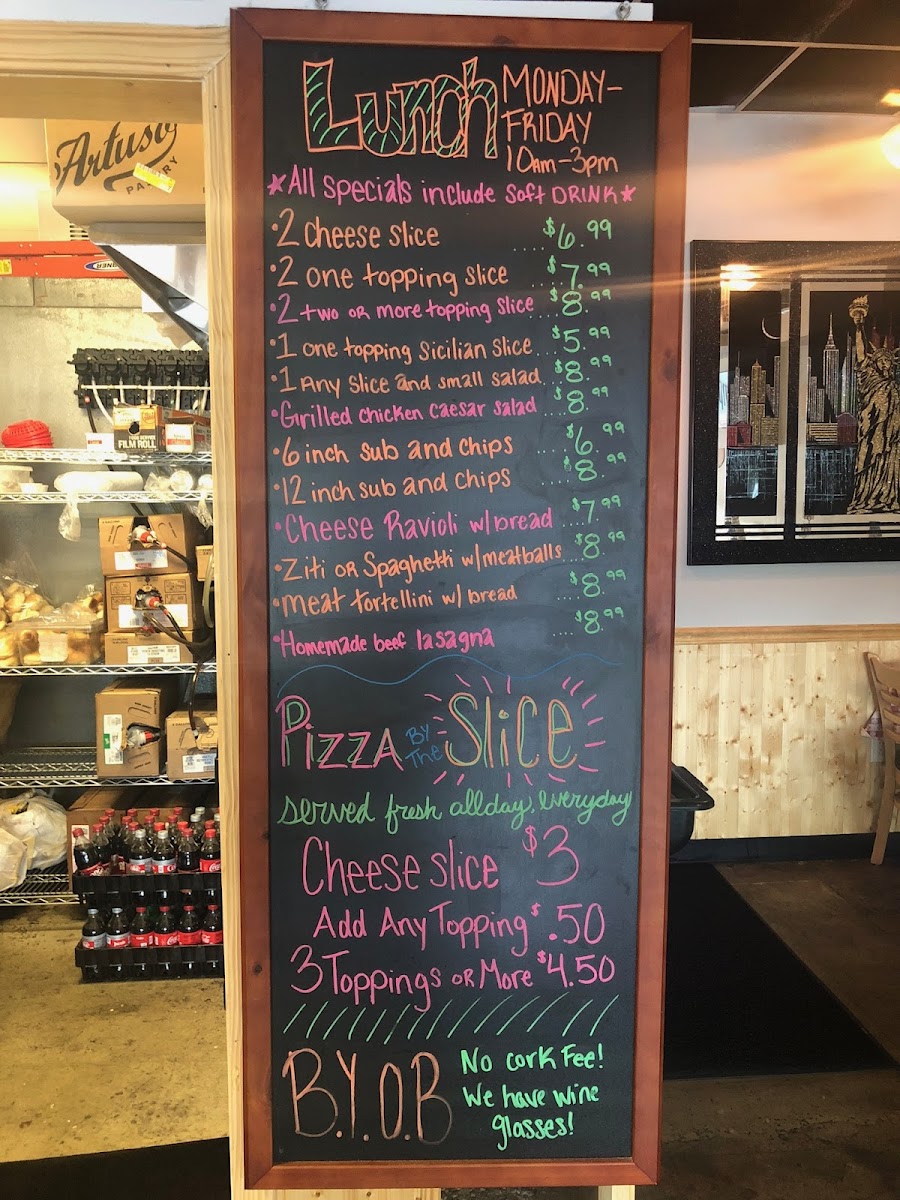 Artuso
PASTRY
WERNER
FOOD SERVICE
FILM ROLL
Lunch MONDAY-
FRIDAY
10am-3pm
*All specials include soft DRINK*
•2 cheese slice ....$6.99
•2 one topping slice $7.99
•2 two or more topping slice $8.99
•1 one topping Sicilian slice...$5.99
•1 Any slice and small salad.. $8.99
•Grilled chicken caesar salad ...$8.99
•6 inch sub and chips ....$6.99
•12 inch sub and chips ....$8.99
•Cheese Ravioli w/bread ....$7.99
•Ziti or Spaghetti w/meatballs...$8.99
•meat tortellini w/bread ....$8.99
•Homemade beef lasagna ....$8.99
Pizza BY The Slice
served fresh all day, everyday
Cheese slice $3
Add Any Topping $.50
3 Toppings or More $4.50
B.Y.O.B
No cork Fee!
We have wine
glasses!